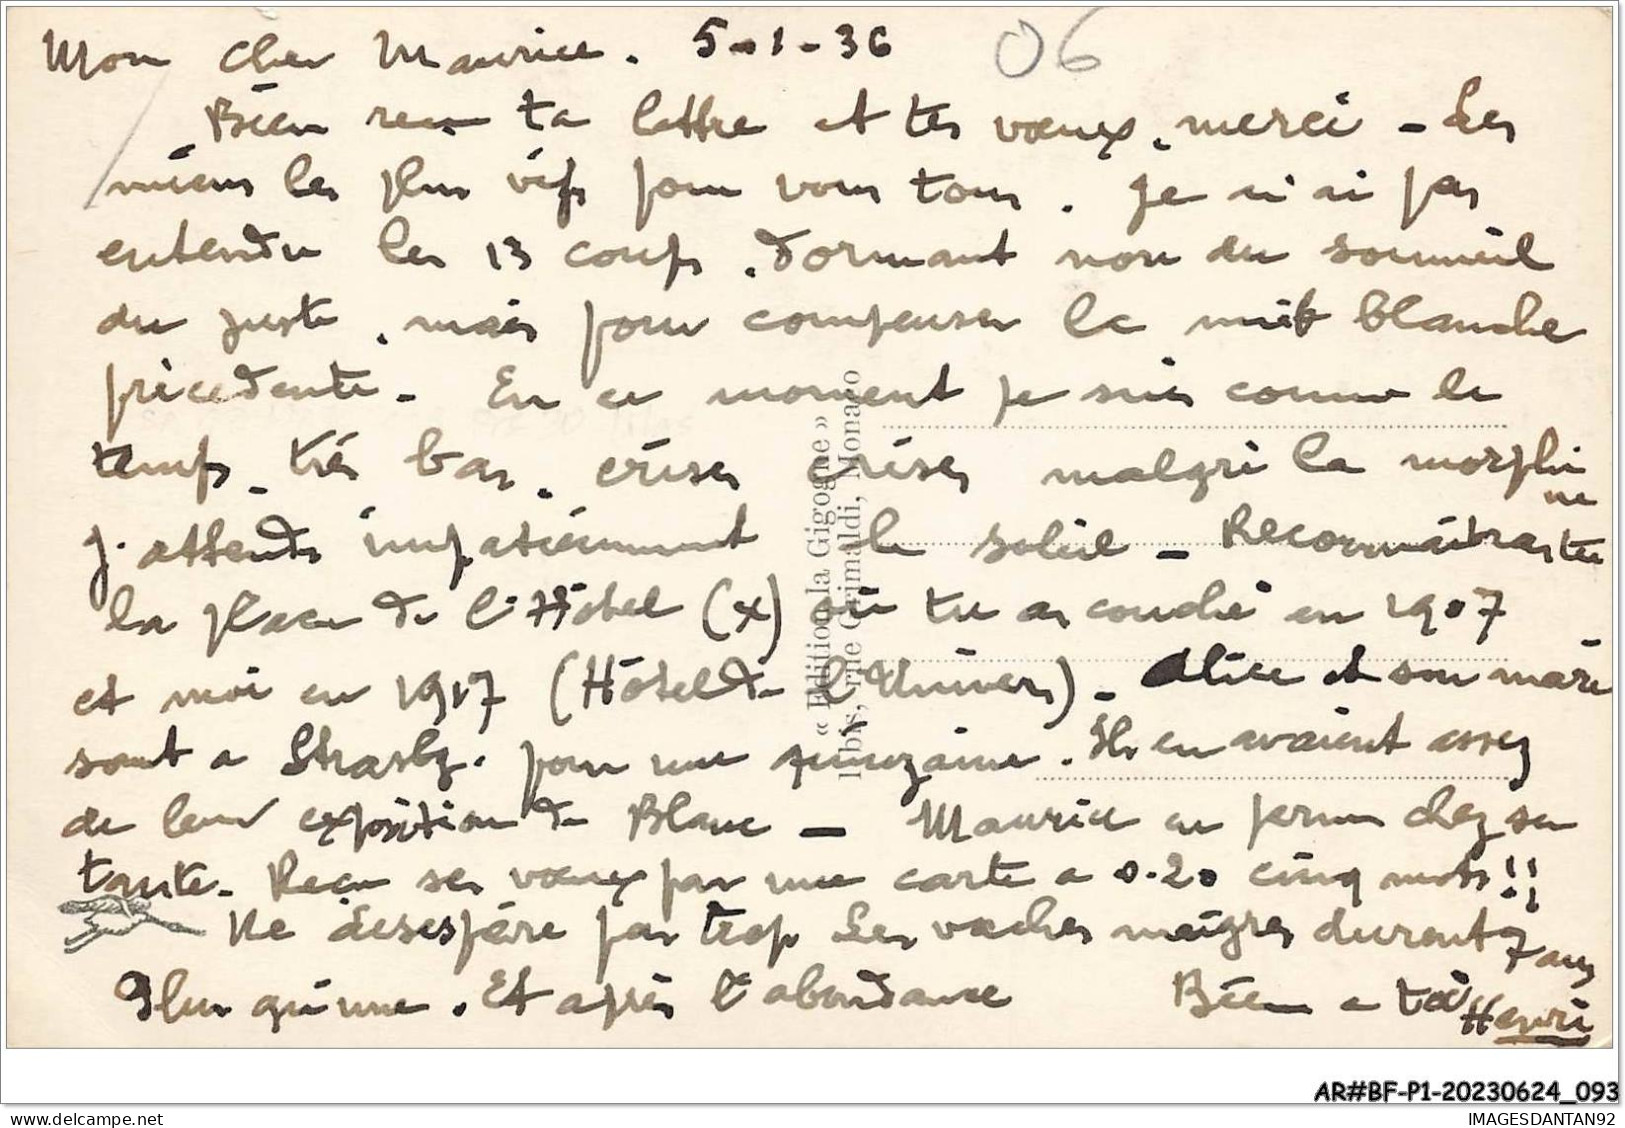 Mon cher Maurice. 5-1-36
06
Bien reçu ta lettre et tes vœux, merci - Les
miens les plus vifs pour vous tous. Je n'ai pas
entendu les 13 coups, dormant non du sommeil
du juste, mais pour compenser la nuit blanche
précédente - En ce moment je suis comme le
temps, très bas, crises crises malgré la morphi
ne
j'attends impatiemment le soleil - Reconnaitras tu
la place de l'Hôtel (x) où tu as couché en 1907
et moi en 1917 (Hôtel de l'Univers) - Alice et son mari
sont a Strasbg. pour une quinzaine. Ils en avaient assez
de leur exposition de Blanc - Maurice en perm chez sa
tante. Reçu ses vœux par une carte a 0.20 cinq mots!!
Ne desespère pas trop Les vaches maigres durent 7 ans
Plus qu'une. Et après l'abondance Bien a toi
Henri
« Edition la Gigogne »
1bis, rue Grimaldi, Monaco
AR#BF-P1-20230624_093
IMAGESDANTAN92